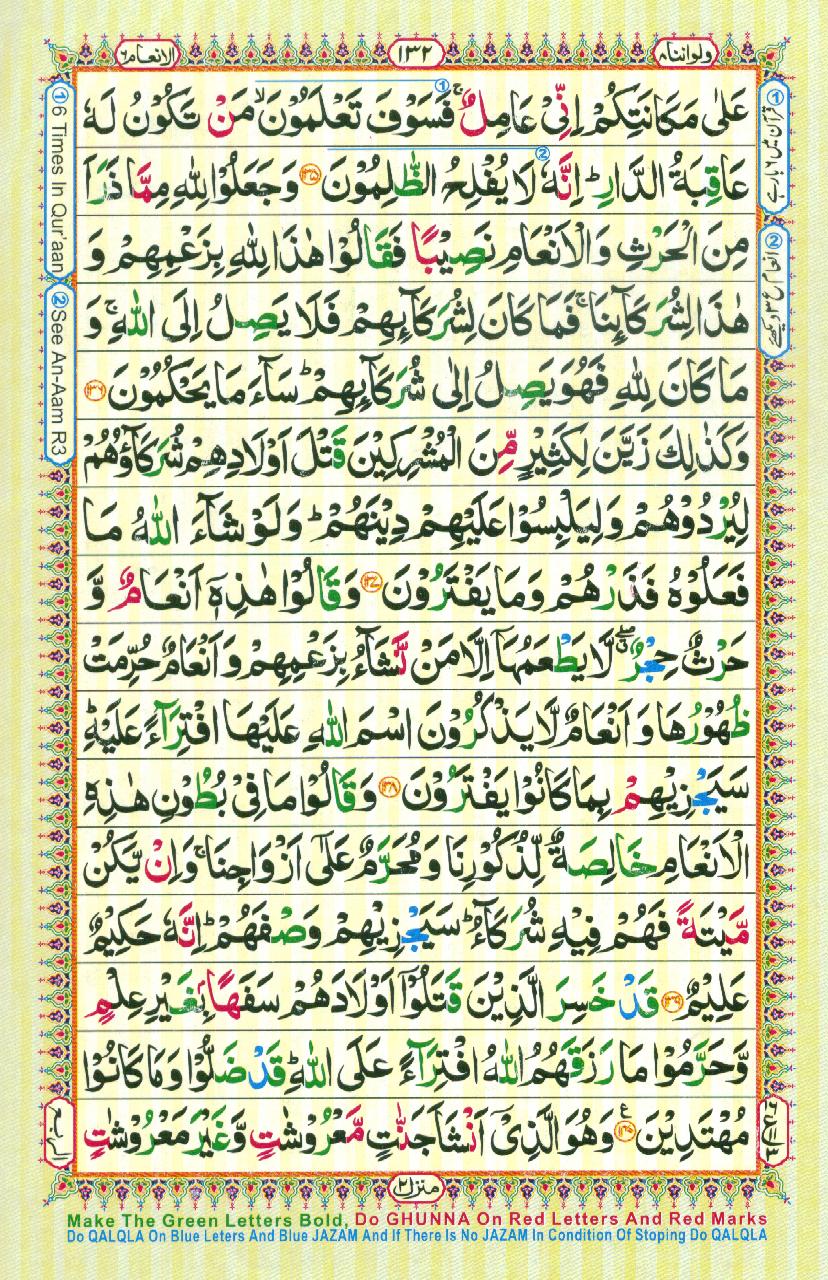 ولواننا ٨
١٣٢
الانعام ٦
عَلٰى مَكَانَتِكُمْ اِنِّىْ عَامِلٌ ۚ فَسَوْفَ تَعْلَمُوْنَ ۙ مَنْ تَكُوْنُ لَهٗ
عَاقِبَةُ الدَّارِ ؕ اِنَّهٗ لَا يُفْلِحُ الظّٰلِمُوْنَ ﴿١٣٥﴾ وَجَعَلُوْا لِلّٰهِ مِمَّا ذَرَاَ
مِنَ الْحَرْثِ وَالْاَنْعَامِ نَصِيْبًا فَقَالُوْا هٰذَا لِلّٰهِ بِزَعْمِهِمْ وَ
هٰذَا لِشُرَكَآئِنَا ۚ فَمَا كَانَ لِشُرَكَآئِهِمْ فَلَا يَصِلُ اِلَى اللّٰهِ ۚ وَ
مَا كَانَ لِلّٰهِ فَهُوَ يَصِلُ اِلٰى شُرَكَآئِهِمْ ؕ سَآءَ مَا يَحْكُمُوْنَ ﴿١٣٦﴾
وَكَذٰلِكَ زَيَّنَ لِكَثِيْرٍ مِّنَ الْمُشْرِكِيْنَ قَتْلَ اَوْلَادِهِمْ شُرَكَآؤُهُمْ
لِيُرْدُوْهُمْ وَلِيَلْبِسُوْا عَلَيْهِمْ دِيْنَهُمْ ؕ وَلَوْ شَآءَ اللّٰهُ مَا
فَعَلُوْهُ فَذَرْهُمْ وَمَا يَفْتَرُوْنَ ﴿١٣٧﴾ وَقَالُوْا هٰذِهٖۤ اَنْعَامٌ وَّ
حَرْثٌ حِجْرٌ ۖ لَّا يَطْعَمُهَاۤ اِلَّا مَنْ نَّشَآءُ بِزَعْمِهِمْ وَاَنْعَامٌ حُرِّمَتْ
ظُهُوْرُهَا وَاَنْعَامٌ لَّا يَذْكُرُوْنَ اسْمَ اللّٰهِ عَلَيْهَا افْتِرَآءً عَلَيْهِ ؕ
سَيَجْزِيْهِمْ بِمَا كَانُوْا يَفْتَرُوْنَ ﴿١٣٨﴾ وَقَالُوْا مَا فِىْ بُطُوْنِ هٰذِهِ
الْاَنْعَامِ خَالِصَةٌ لِّذُكُوْرِنَا وَمُحَرَّمٌ عَلٰٓى اَزْوَاجِنَا ۚ وَاِنْ يَّكُنْ
مَّيْتَةً فَهُمْ فِيْهِ شُرَكَآءُ ؕ سَيَجْزِيْهِمْ وَصْفَهُمْ ؕ اِنَّهٗ حَكِيْمٌ
عَلِيْمٌ ﴿١٣٩﴾ قَدْ خَسِرَ الَّذِيْنَ قَتَلُوْۤا اَوْلَادَهُمْ سَفَهًۢا بِغَيْرِ عِلْمٍ
وَّحَرَّمُوْا مَا رَزَقَهُمُ اللّٰهُ افْتِرَآءً عَلَى اللّٰهِ ؕ قَدْ ضَلُّوْا وَمَا كَانُوْا
مُهْتَدِيْنَ ﴿١٤٠﴾ ع وَهُوَ الَّذِىْۤ اَنْشَاَ جَنّٰتٍ مَّعْرُوْشٰتٍ وَّغَيْرَ مَعْرُوْشٰتٍ
① قرآن میں ٦ بار ہے
② انعام ع ٣ دیکھئے
① 6 Times In Qur'aan
② See An-Aam R3
الربع
منزل ٢
Make The Green Letters Bold, Do GHUNNA On Red Letters And Red Marks
Do QALQLA On Blue Leters And Blue JAZAM And If There Is No JAZAM In Condition Of Stoping Do QALQLA